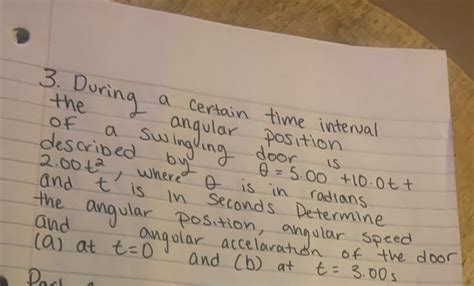 3. During a certain time interval
the angular position
of a swinging door is
described by θ = 5.00 + 10.0t +
2.00t², where θ is in radians
and t is in seconds Determine
the angular position, angular speed
and angular accelaration of the door
(a) at t=0 and (b) at t = 3.00s